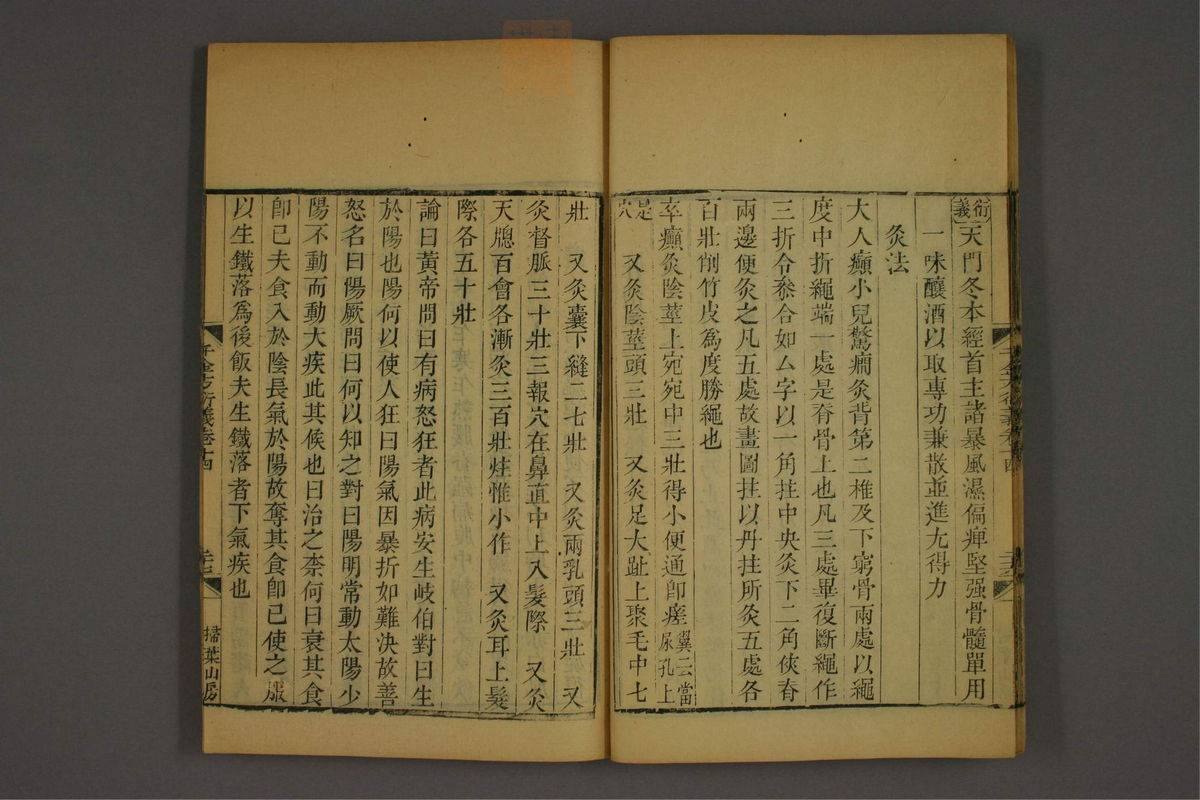 衍義天門冬本經首主諸暴風濕偏痺堅强骨髓單用
一味釀酒以取專功兼散並進尤得力
灸法
大人癲小兒驚癇灸背第二椎及下窮骨兩處以繩
度中折繩端一處是脊骨上也凡三處畢復斷繩作
三折令叅合如厶字以一角拄中央灸下二角俠脊
兩邊便灸之凡五處故畫圖拄以丹拄所灸五處各
百壯削竹皮爲度勝繩也
卒癲灸陰莖上宛宛中三壯得小便通卽瘥翼云當尿孔上
是穴 又灸陰莖頭三壯 又灸足大趾上聚毛中七
千金方衍義卷十四
壯 又灸囊下縫二七壯 又灸兩乳頭三壯 又
灸督脈三十壯三報穴在鼻直中上入髮際 又灸
天牕百會各漸灸三百壯炷惟小作 又灸耳上髮
際各五十壯
論曰黃帝問曰有病怒狂者此病安生岐伯對曰生
於陽也陽何以使人狂曰陽氣因暴折如難決故善
怒名曰陽厥問曰何以知之對曰陽明常動太陽少
陽不動而動大疾此其候也曰治之柰何曰衰其食
卽已夫食入於陰長氣於陽故奪其食卽已使之服
以生鐵落爲後飯夫生鐵落者下氣疾也
千金方衍義卷十四
掃葉山房